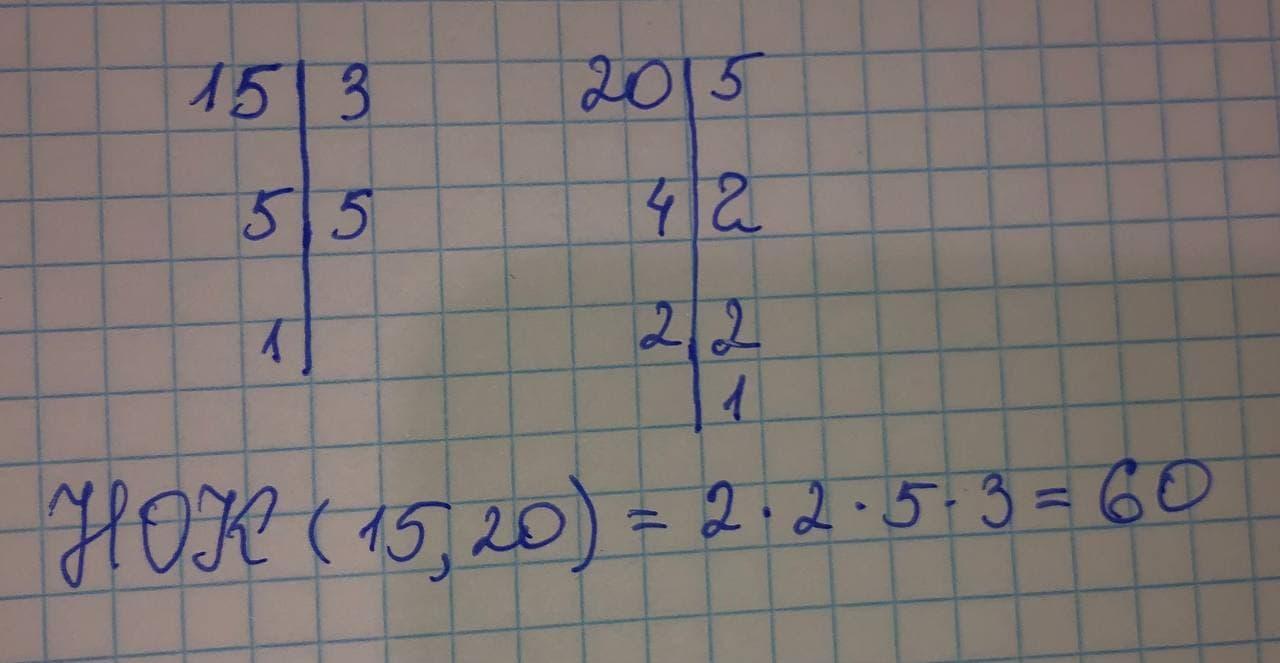 15 | 3 20 | 5
5 | 5 4 | 2
1 | 2 | 2
| 1
НОК (15, 20) = 2 · 2 · 5 · 3 = 60